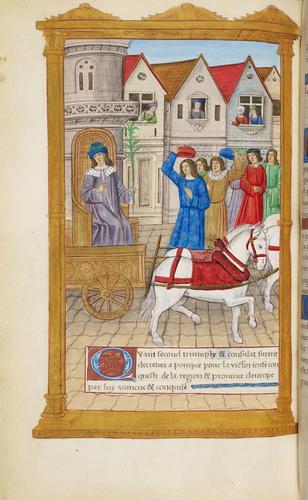 Uant second triumphe & consulat furent
decretees a pompee pour la victorieuse con
queste de la region & prouince deurope
par luy vaincue & conquise